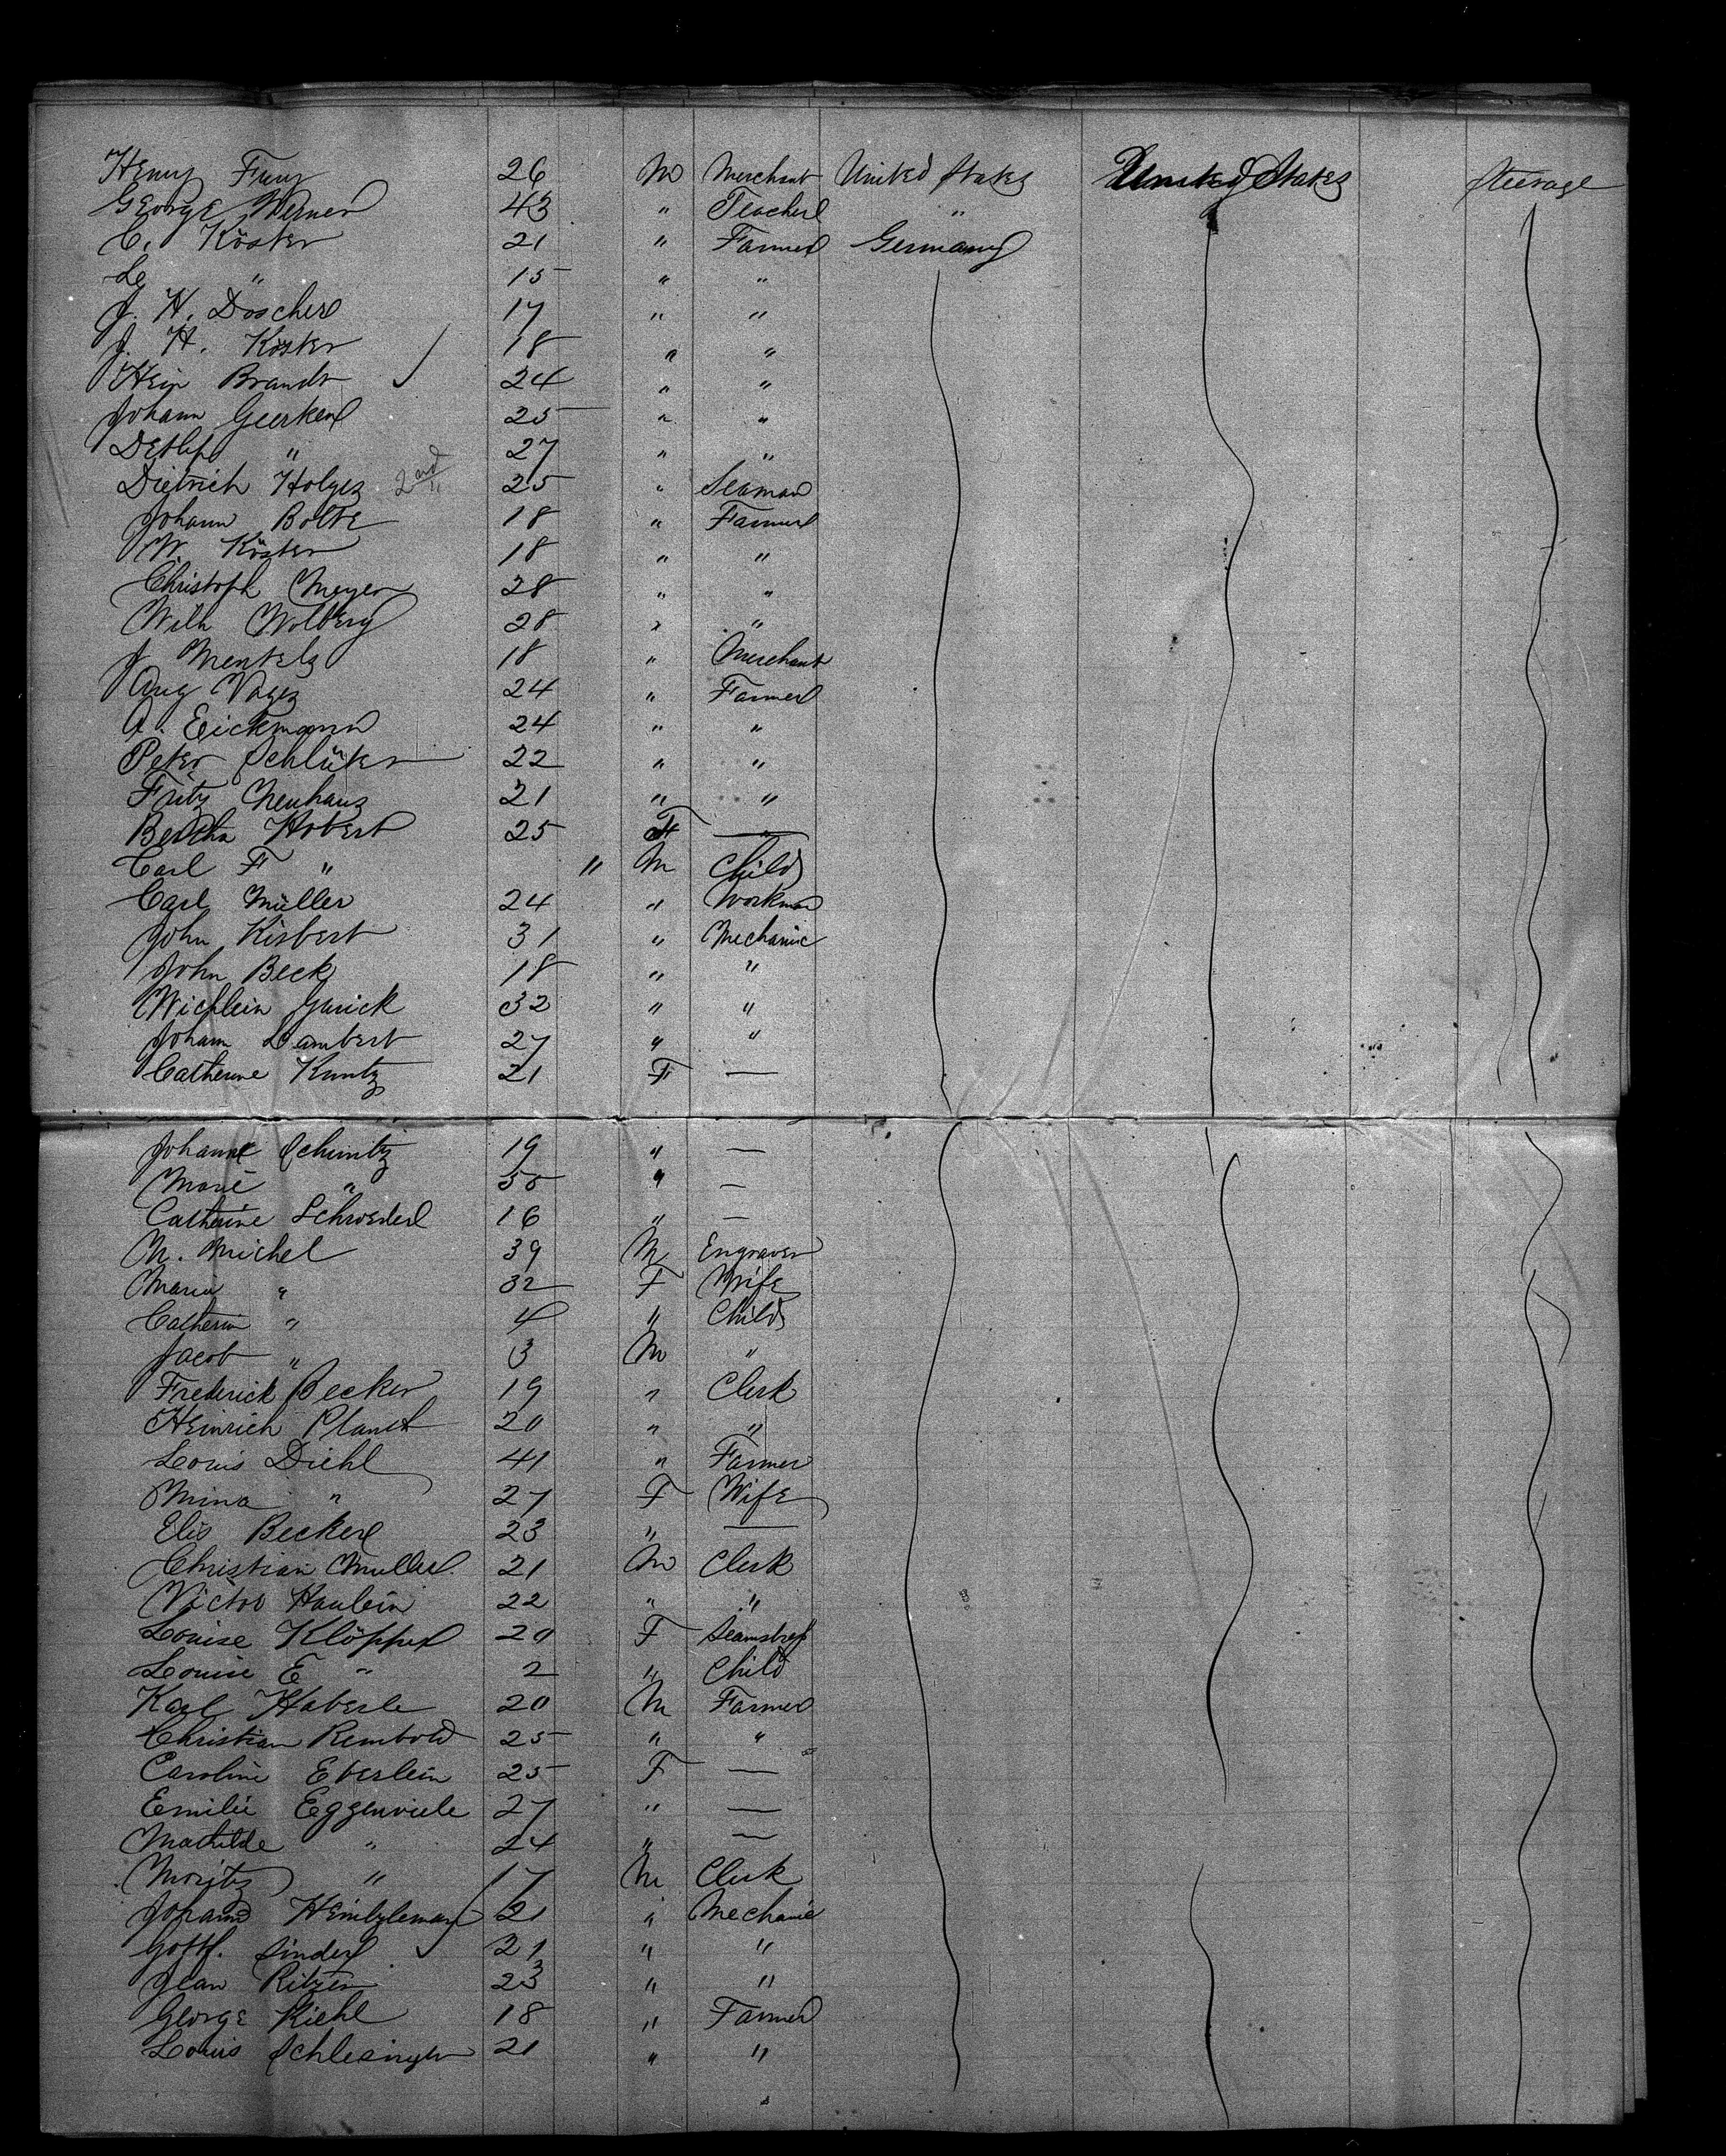 Henry Frey 26 M Merchant United States United States Steerage
George Werner 43 " Teacher "
C. Köster 21 " Farmer Germany
" 15 " "
J. H. Döscher 17 " "
J. H. Köster 18 " "
Hein Brandt 24 " "
Johann Geerken 25 " "
Detlef " 27 " "
Dietrich Holyez 2nd " 25 " Seaman
Johann Bolte 18 " Farmer
W. Köster 18 " "
Christoph Meyer 28 " "
Wilh Wolberg 28 " "
J Mentelz 18 " Merchant
Aug Vagez 24 " Farmer
A. Eickmann 24 " "
Peter Schlüter 22 " "
Fritz Neuhaus 21 " "
Bertha Hobert 25 F —
Carl F " " M Child
Carl Müller 24 " Workman
John Kisbert 31 " Mechanic
John Beck 18 " "
Wichlein Garick 32 " "
Johann Lambert 27 " "
Catherine Kuntz 21 F —
Johanne Schmitz 19 " —
Marie " 50 " —
Catherine Schroeder 16 " —
M. Michel 39 M Engraver
Maria " 32 F Wife
Catherin " 4 " Child
Jacob " 3 M "
Frederick Becker 19 " Clerk
Heinrich Planck 20 " "
Louis Diehl 41 " Farmer
Mina " 27 F Wife
Elis Becker 23 " —
Christian Muller 21 M Clerk
Victor Haulein 22 " "
Louise Klöpper 20 F Seamstress
Louise E " 2 " Child
Karl Haberle 20 M Farmer
Christian Rembold 25 " "
Caroline Eberlein 25 F —
Emilie Eggenviele 27 " —
Mathilde " 24 " —
Moritz " 17 M Clerk
Johann Heintzleman 21 " Mechanic
Gottf. Sinder 21 " "
Jean Ritzen 23 " "
George Kiehl 18 " Farmer
Louis Schlesinger 21 " "